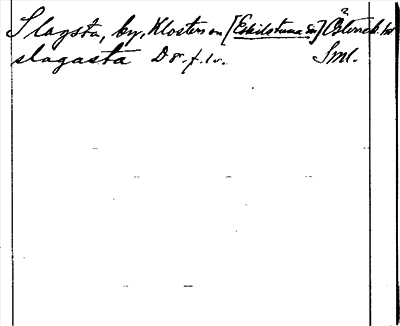 Slagsta, by, Klosters sn [Eskilstuna sn] Österrek. hd
slagasta D 8. f. 1 v. Sml.